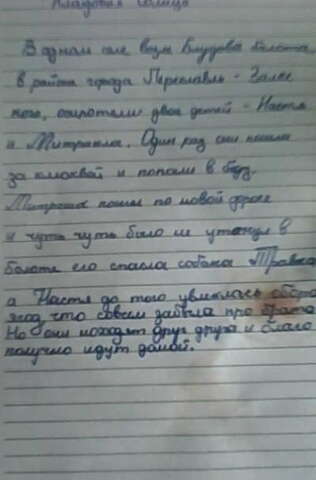 Кладовая солнца
В одном селе возле Блудова болота
в районе города Переславль-Залес
кого, осиротели двое детей - Настя
и Митраша. Один раз они пошли
за клюквой и попали в беду.
Митраша пошел по новой дороге
и чуть чуть было не утонул в
болоте его спасла собака Травка
а Настя до того увлеклась сбором
ягод что совсем забыла про брата
Но они находят друг друга и благо
получно идут домой.